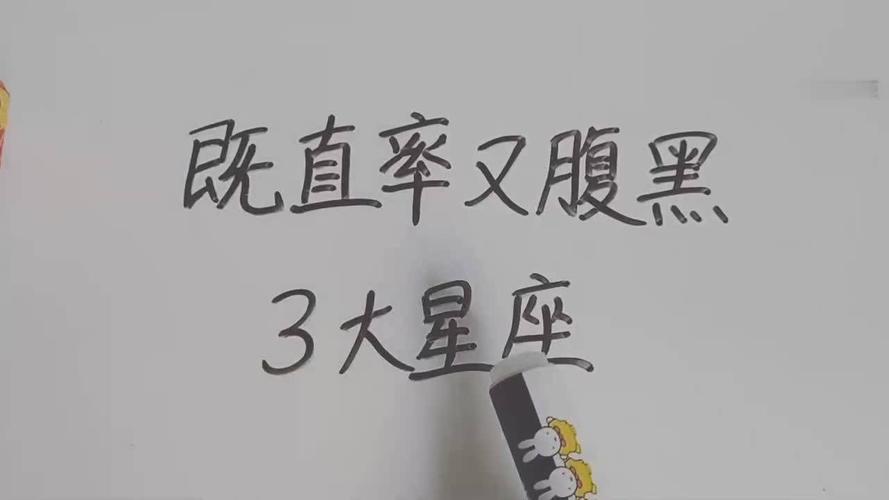 既直率又腹黑
3大星座